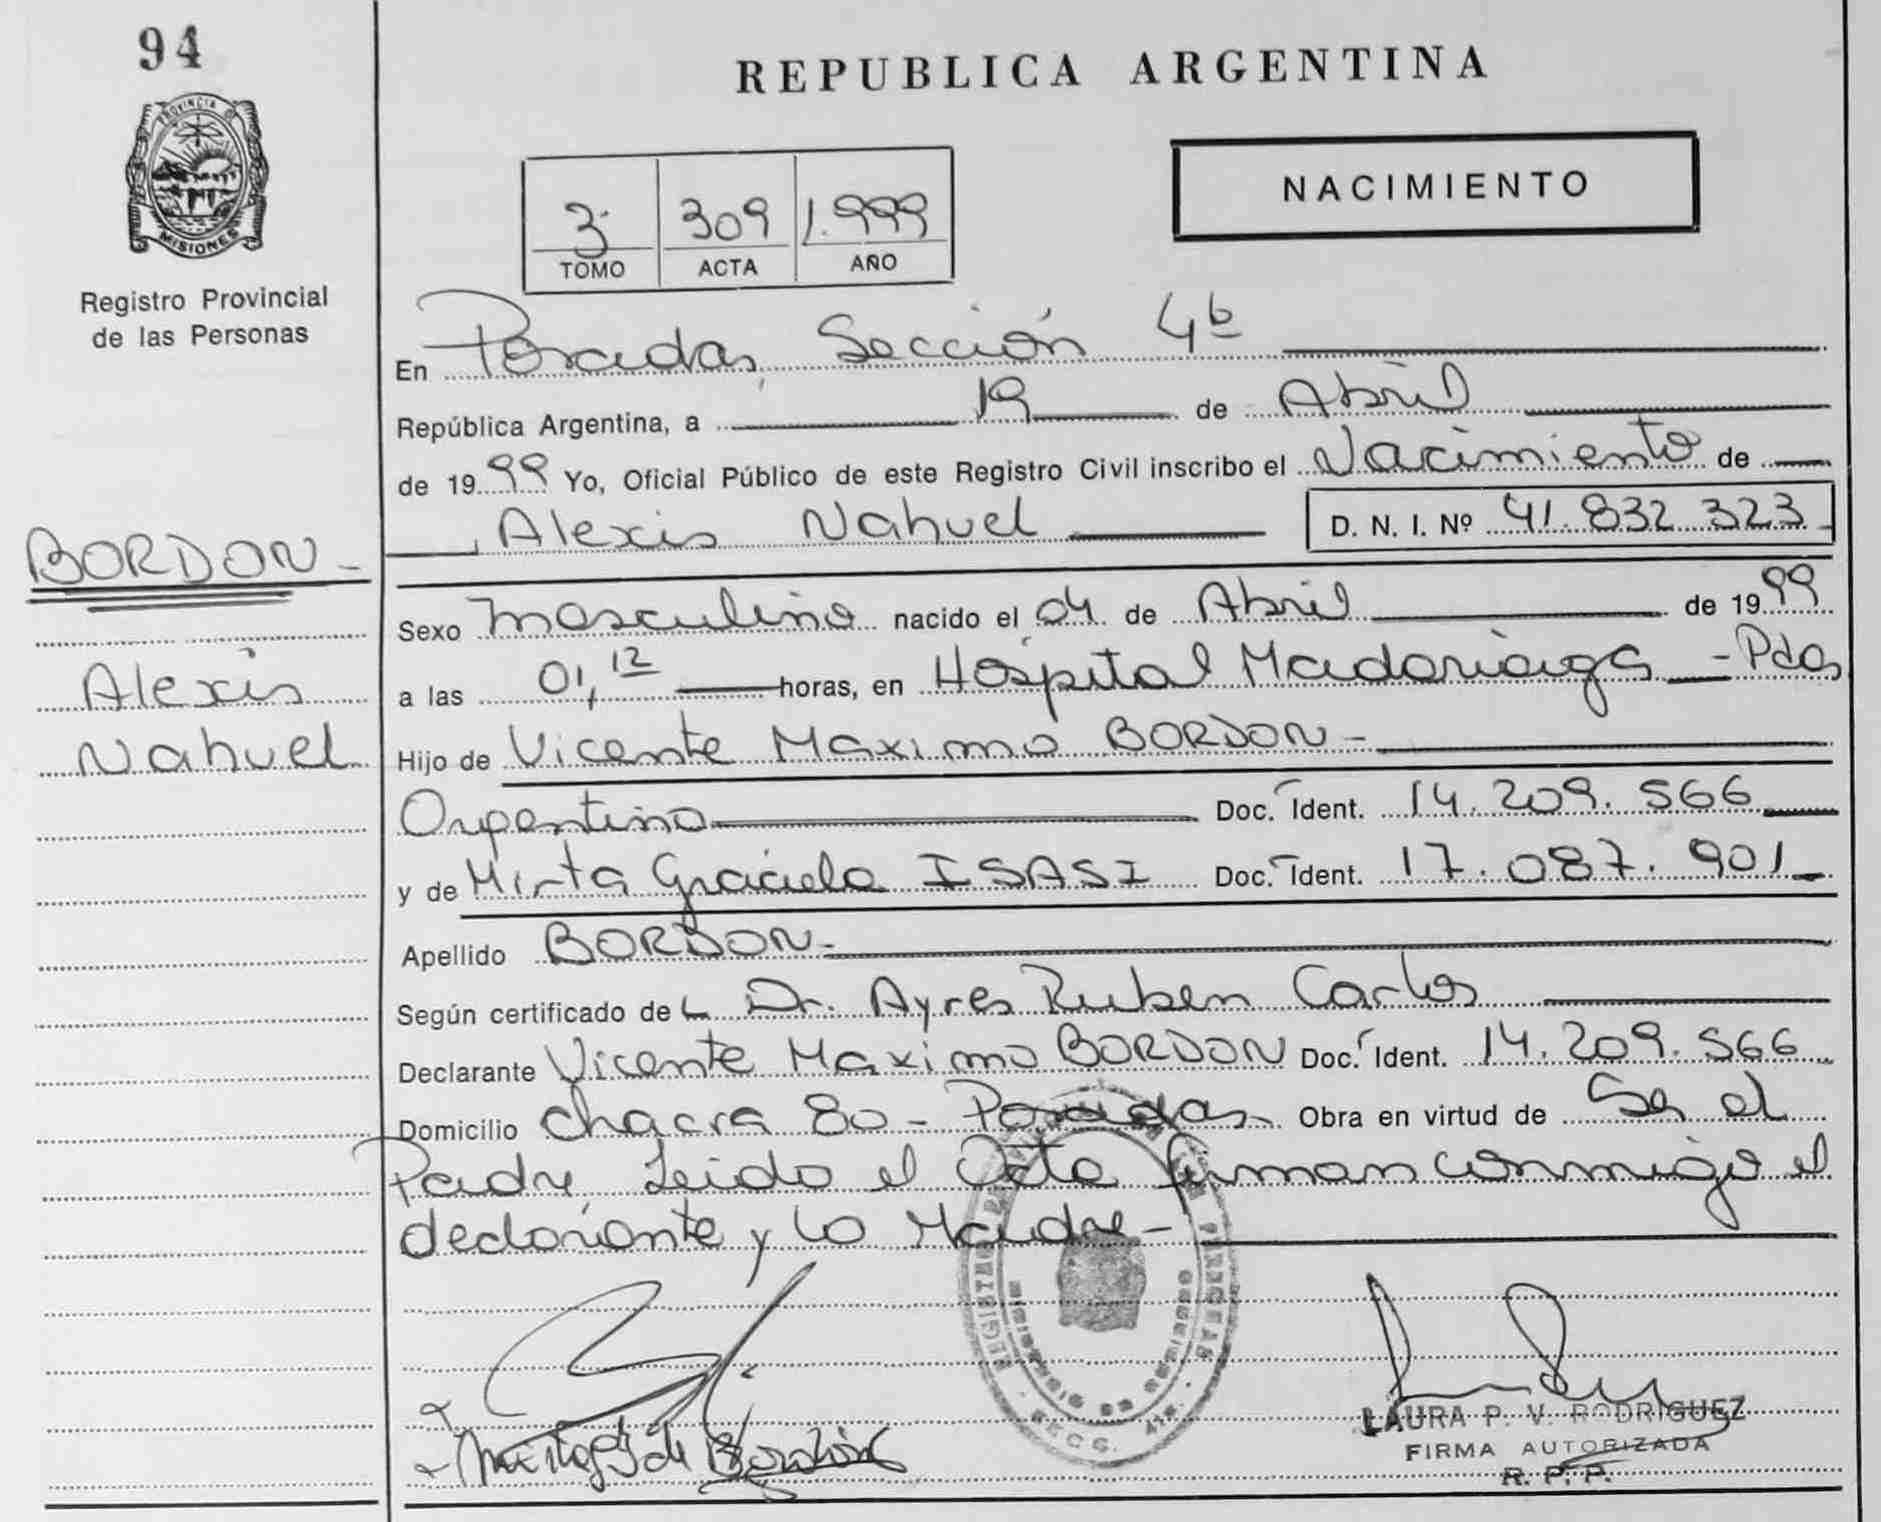 94
PROVINCIA D
MISIONES
Registro Provincial
de las Personas
REPUBLICA ARGENTINA
NACIMIENTO
3 309 1.999
TOMO ACTA AÑO
En Posadas, Sección 4ta
República Argentina, a 19 de Abril
de 1999 Yo, Oficial Público de este Registro Civil inscribo el Nacimiento de
Alexis Nahuel D. N. I. Nº 41.832.323
BORDON -
Alexis
Nahuel
Sexo masculino nacido el 04 de Abril de 1999
a las 01,12 horas, en Hospital Madariaga - Pdas
Hijo de Vicente Maximo BORDON -
Argentino Doc. Ident. 14.209.566
y de Mirta Graciela ISASI Doc. Ident. 17.087.901
Apellido BORDON -
Según certificado de Dr. Ayres Ruben Carlos
Declarante Vicente Maximo BORDON Doc. Ident. 14.209.566
Domicilio chacra 80 - Posadas Obra en virtud de Ser el
Padre Leido el Acta firman conmigo el
declarante y la Madre -
Mirta G I de Bordón
LAURA P. V. RODRIGUEZ
FIRMA AUTORIZADA
R. P. P.